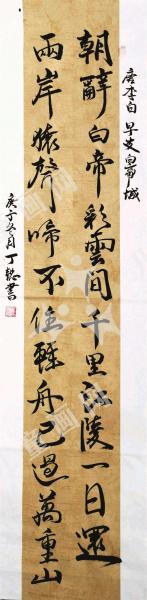 唐李白早发白帝城
朝辭白帝彩雲間千里江陵一日還
兩岸猿聲啼不住輕舟已過萬重山
庚子冬月丁懿書